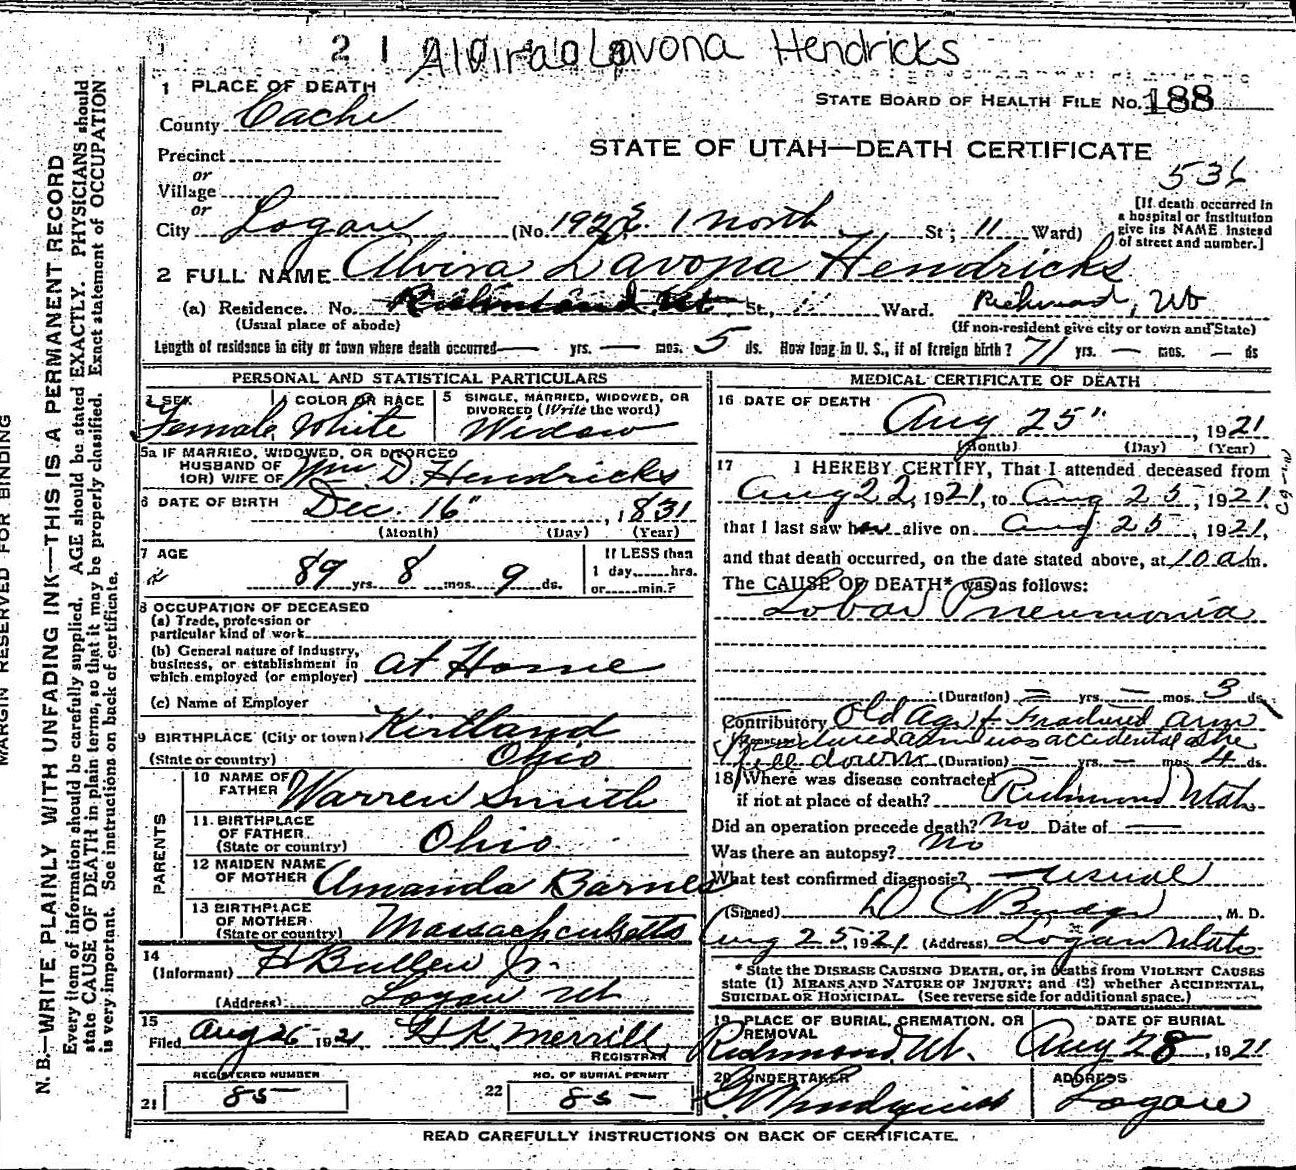 2 1 Alvira Lavona Hendricks
1 PLACE OF DEATH
STATE BOARD OF HEALTH FILE No. 188
County Cache
STATE OF UTAH—DEATH CERTIFICATE
Precinct
or
536
Village
or
[If death occurred in
a hospital or institution
give its NAME instead
of street and number.]
City Logan (No. 192 E. 1 North St; 11 Ward)
2 FULL NAME Alvira Lavona Hendricks
(a) Residence. No. Richmond, Ut St., 11 Ward. Richmond, Ut
(Usual place of abode) (If non-resident give city or town and State)
Length of residence in city or town where death occurred — yrs. — mos. 5 ds. How long in U. S., if of foreign birth? 71 yrs. — mos. — ds
PERSONAL AND STATISTICAL PARTICULARS
3 SEX Female
4 COLOR OR RACE White
5 SINGLE, MARRIED, WIDOWED, OR
DIVORCED (Write the word)
Widow
5a IF MARRIED, WIDOWED, OR DIVORCED
HUSBAND OF
(OR) WIFE OF Wm. D. Hendricks
6 DATE OF BIRTH Dec. 16", 1831
(Month) (Day) (Year)
7 AGE
89 yrs. 8 mos. 9 ds.
If LESS than
1 day,......hrs.
or......min.?
8 OCCUPATION OF DECEASED
(a) Trade, profession or
particular kind of work
(b) General nature of industry,
business, or establishment in
which employed (or employer) at Home
(c) Name of Employer
9 BIRTHPLACE (City or town) Kirtland
(State or country) Ohio
PARENTS
10 NAME OF
FATHER Warren Smith
11. BIRTHPLACE
OF FATHER
(State or country) Ohio
12 MAIDEN NAME
OF MOTHER Amanda Barnes
13 BIRTHPLACE
OF MOTHER
(State or country) Massachusetts
14
(Informant) H Bullen Jr.
(Address) Logan Ut
15
Filed Aug 26 1921 H. K. Merrill
REGISTRAR
REGISTERED NUMBER
21 85
NO. OF BURIAL PERMIT
22 85
MEDICAL CERTIFICATE OF DEATH
16 DATE OF DEATH
Aug 25", 1921
(Month) (Day) (Year)
17 I HEREBY CERTIFY, That I attended deceased from
Aug 22, 1921, to Aug 25, 1921,
that I last saw her alive on Aug 25, 1921,
and that death occurred, on the date stated above, at 10 a.m.
The CAUSE OF DEATH* was as follows:
Lobar Pneumonia
(Duration) — yrs. — mos. 3 ds.
Contributory Old Age & Fractured arm
Fractured arm was accidental she
fell down (Duration) — yrs. — mos. 4 ds.
18 Where was disease contracted
if not at place of death? Richmond Utah
Did an operation precede death? No Date of —
Was there an autopsy? No
What test confirmed diagnosis? usual
(Signed) D C Budge, M. D.
Aug 25, 1921 (Address) Logan Utah
* State the DISEASE CAUSING DEATH, or, in deaths from VIOLENT CAUSES
state (1) MEANS AND NATURE OF INJURY; and (2) whether ACCIDENTAL,
SUICIDAL OR HOMICIDAL. (See reverse side for additional space.)
19 PLACE OF BURIAL, CREMATION, OR
REMOVAL
Richmond Ut.
DATE OF BURIAL
Aug 28, 1921
20 UNDERTAKER
ADDRESS
Logan
READ CAREFULLY INSTRUCTIONS ON BACK OF CERTIFICATE.
MARGIN RESERVED FOR BINDING
N. B.—WRITE PLAINLY WITH UNFADING INK—THIS IS A PERMANENT RECORD
Every item of information should be carefully supplied. AGE should be stated EXACTLY. PHYSICIANS should
state CAUSE OF DEATH in plain terms, so that it may be properly classified. Exact statement of OCCUPATION
is very important. See instructions on back of certificate.